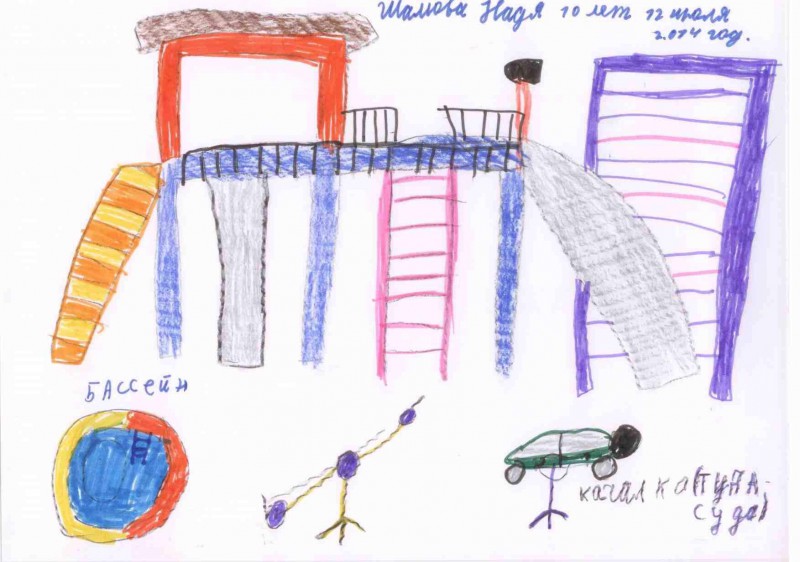 Шамова Надя 10 лет 12 июля
2014 год.
БАССЕЙН
качалка